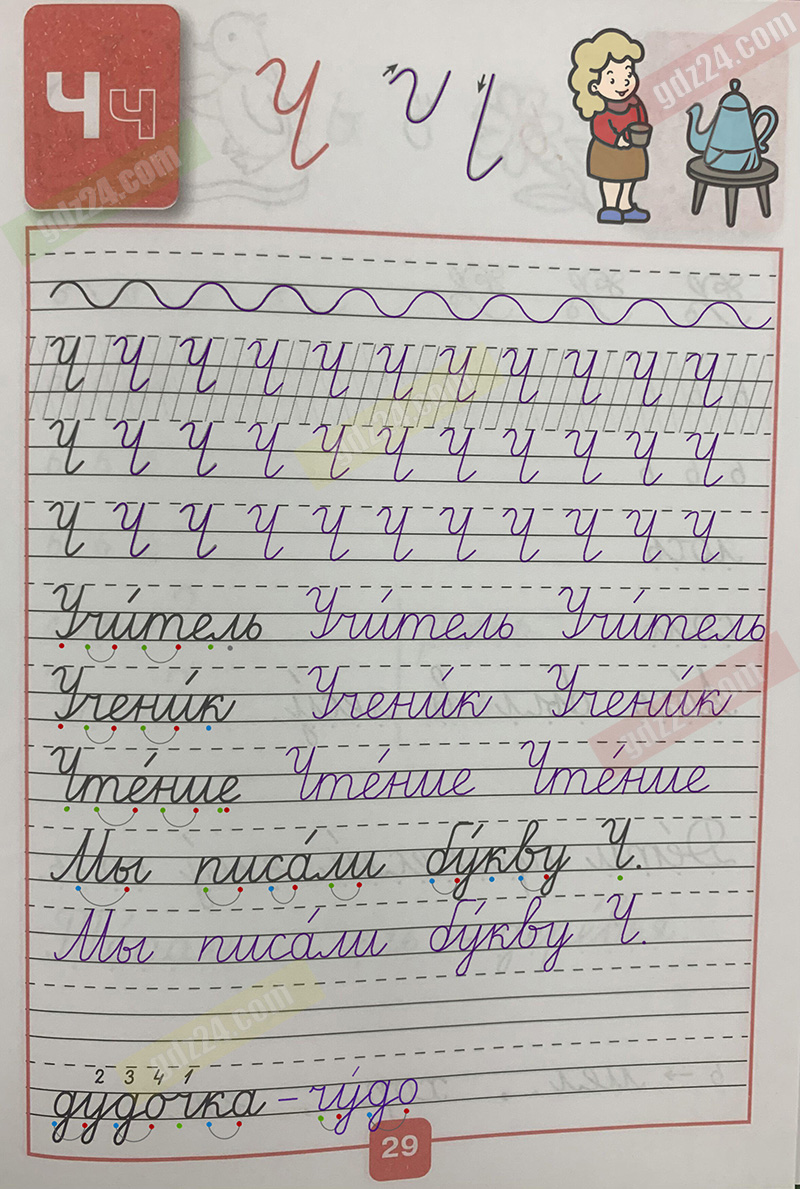 Чч Ч
gdz24.com
gdz24.com
Ч Ч Ч Ч Ч Ч Ч Ч Ч Ч Ч
Ч Ч Ч Ч Ч Ч Ч Ч Ч Ч Ч
gdz24.com
Ч Ч Ч Ч Ч Ч Ч Ч Ч Ч Ч
Учи́тель Учи́тель Учи́тель
Учени́к Учени́к Учени́к
gdz24.com
Чте́ние Чте́ние Чте́ние
Мы писа́ли бу́кву Ч.
Мы писа́ли бу́кву Ч.
gdz24.com
2 3 4 1
дудочка – чу́до
29